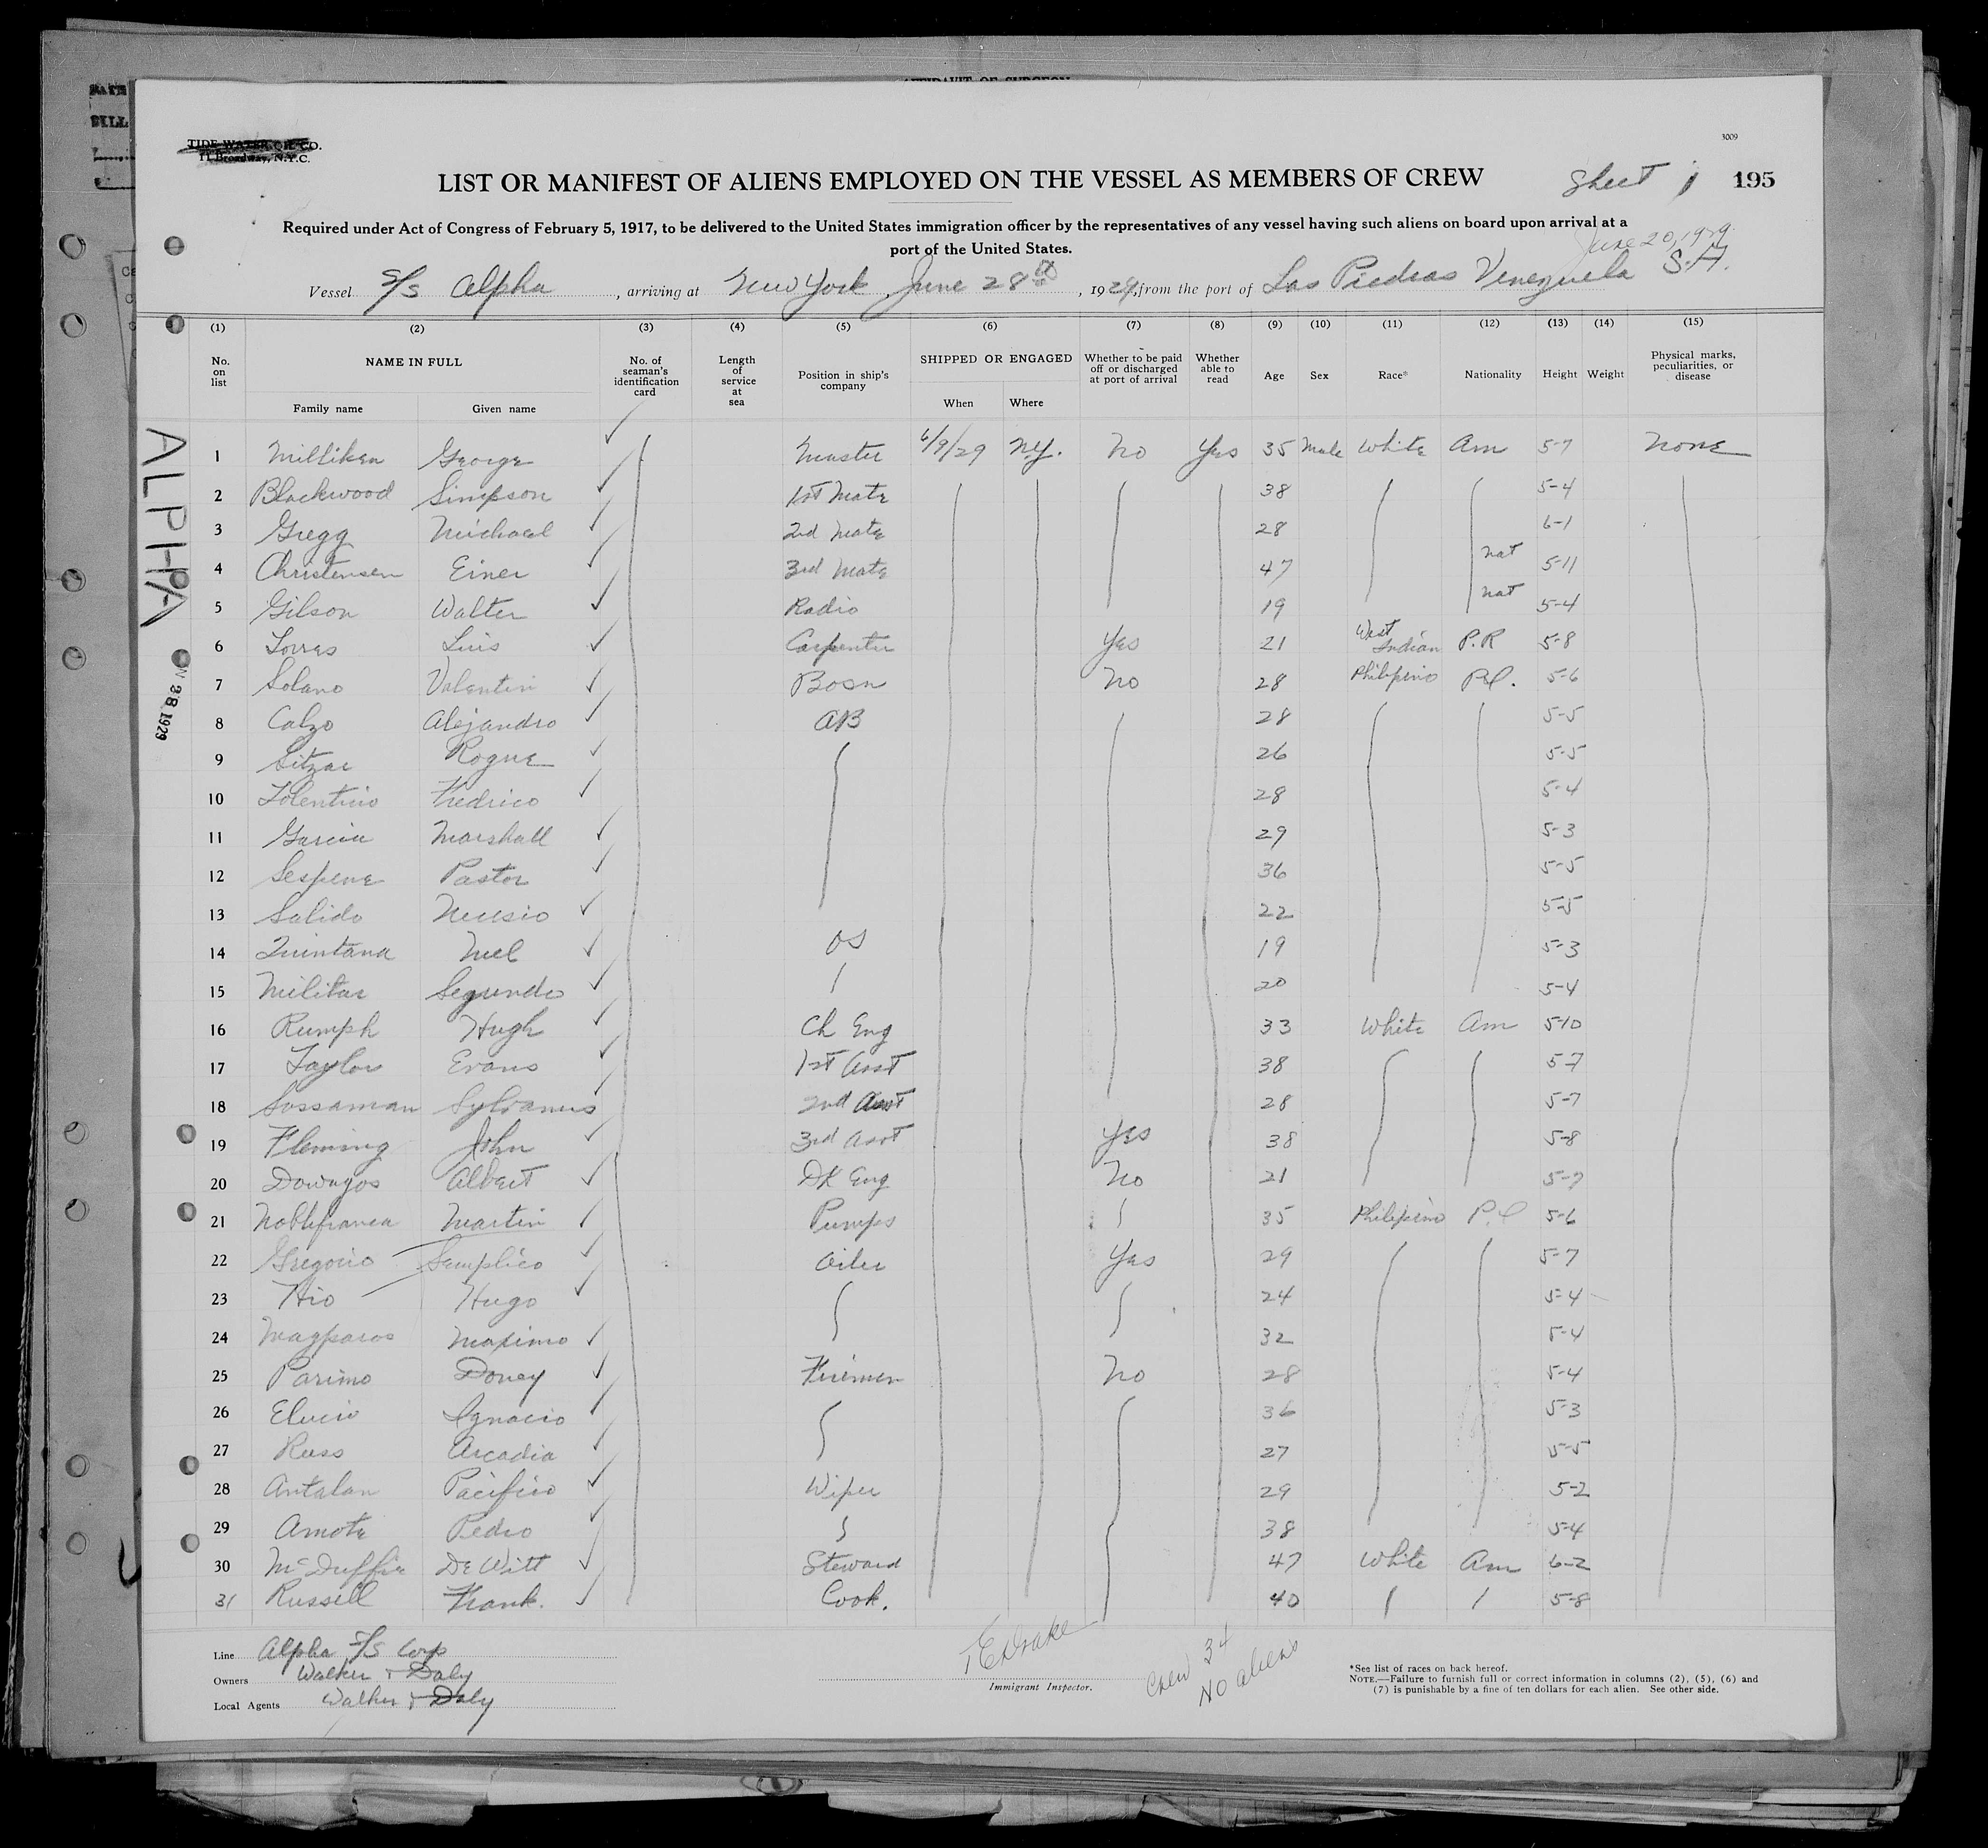 TIDE WATER OIL CO.
11 Broadway, N.Y.C.
3009
LIST OR MANIFEST OF ALIENS EMPLOYED ON THE VESSEL AS MEMBERS OF CREW
Sheet 1 195
Required under Act of Congress of February 5, 1917, to be delivered to the United States immigration officer by the representatives of any vessel having such aliens on board upon arrival at a
port of the United States.
June 20, 1929
Vessel S/S Alpha, arriving at New York, June 28th, 1929, from the port of Las Piedras Venezuela S.A.
(1) (2) (3) (4) (5) (6) (7) (8) (9) (10) (11) (12) (13) (14) (15)
No. on list NAME IN FULL Family name Given name No. of seaman's identification card Length of service at sea Position in ship's company SHIPPED OR ENGAGED When Where Whether to be paid off or discharged at port of arrival Whether able to read Age Sex Race* Nationality Height Weight Physical marks, peculiarities, or disease
ALPHA
28 1929
1 Milliken George Master 6/9/29 N.Y. No Yes 35 Male White Am 5-7 None
2 Blackwood Simpson 1st Mate 38 5-4
3 Gregg Michael 2nd Mate 28 6-1
4 Christensen Einer 3rd Mate 47 nat 5-11
5 Gilson Walter Radio 19 nat 5-4
6 Torres Luis Carpenter Yes 21 West Indian P.R 5-8
7 Solano Valentin Bosn No 28 Philipino P.I. 5-6
8 Calzo Alejandro AB 28 5-5
9 Sitzar Rogue 26 5-5
10 Tolentino Fredrico 28 5-4
11 Garcia Marshall 29 5-3
12 Sespene Pastor 36 5-5
13 Salido 22 5-5
14 Quintana Mel OS 19 5-3
15 Militar Segundo 20 5-4
16 Rumph Hugh Ch Eng 33 White Am 5-10
17 Taylor Evans 1st Asst 38 5-7
18 Sossaman Sylvanus 2nd Asst 28 5-7
19 Fleming John 3rd Asst Yes 38 5-8
20 Albert DK Eng No 21 5-7
21 Noblefranca Martin Pumps 35 Philipino P.I 5-6
22 Gregorio Semplico Oiler Yes 29 5-7
23 Hio Hugo 24 5-4
24 Magparos Maximo 32 5-4
25 Parimo Doney Firemen No 28 5-4
26 Elucio Ignacio 36 5-3
27 Russ Arcadia 27 5-5
28 Antalan Pacifico Wiper 29 5-2
29 Amote Pedro 38 5-4
30 McDuffie De Witt Steward 47 White Am 6-2
31 Russell Frank. Cook. 40 5-8
Line Alpha S/S Corp
Owners Walker & Daly
Local Agents Walker & Daly
T E Drake
Immigrant Inspector.
Crew 34
No aliens
*See list of races on back hereof.
NOTE.—Failure to furnish full or correct information in columns (2), (5), (6) and
(7) is punishable by a fine of ten dollars for each alien. See other side.